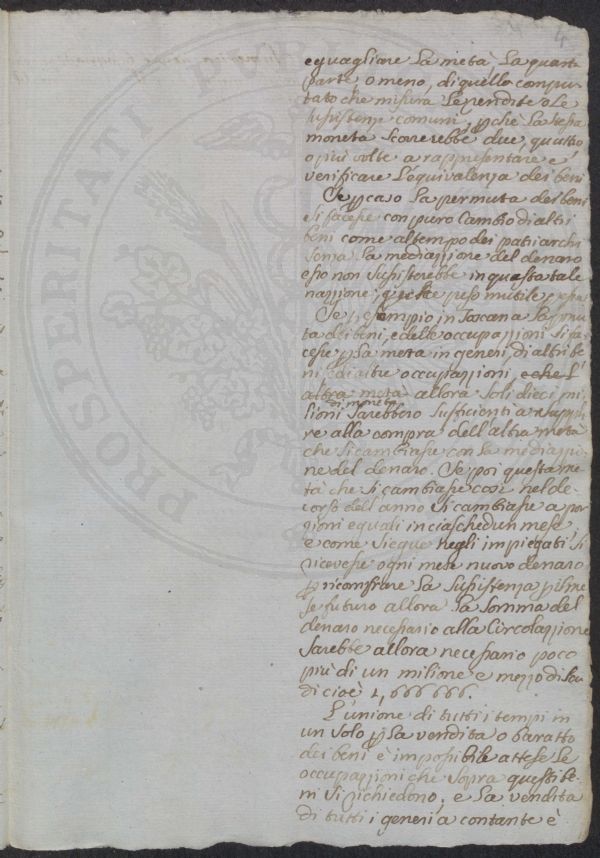 4
eguagliare la metà la quarta
parte, o meno, di quello compu-
tato che misura le rendite o le
sussistenze comuni, pchè la stessa
moneta scorerebbe due, quattro
o più volte a rappresentare e
verificare l'equivalenza dei beni
Se p caso la permuta dei beni
si facesse con puro cambio di altri
beni come al tempo dei patriarchi
senza la mediazzione del denaro
esso non sussisterebbe in questa tale
nazzione,
Se p esempio in Toscana la pmu
ta dei beni, e delle occupazzioni si fa-
cesse p la meta in generi, di altri be
ni, e di altre occupazzioni, e che l'
altra metà allora soli dieci mi-
di moneta
lioni sarebbero sufficienti a suppli
re alla compra dell'altra metà
che si cambiasse con la mediazzio
ne del denaro. Se poi questa me
tà che si cambiasse così nel de-
corso dell'anno si cambiasse a por
zioni eguali in ciaschedun mese,
e come siegue negli impiegati si
ricevesse ogni mese nuovo denaro
p ricomprare la sussistenza p il me
se futuro allora la somma del
denaro necessario alla Circolazzione
sarebbe allora necessario poco
più di un milione e mezzo di scu
di cioè 1,666666.
L'unione di tutti i tempi in
un solo p la vendita o baratto
dei beni è impossibile attese le
occupazzioni che sopra questi be-
ni si richiedono, e la vendita
di tutti i generi a contante è
PROSPERITATI